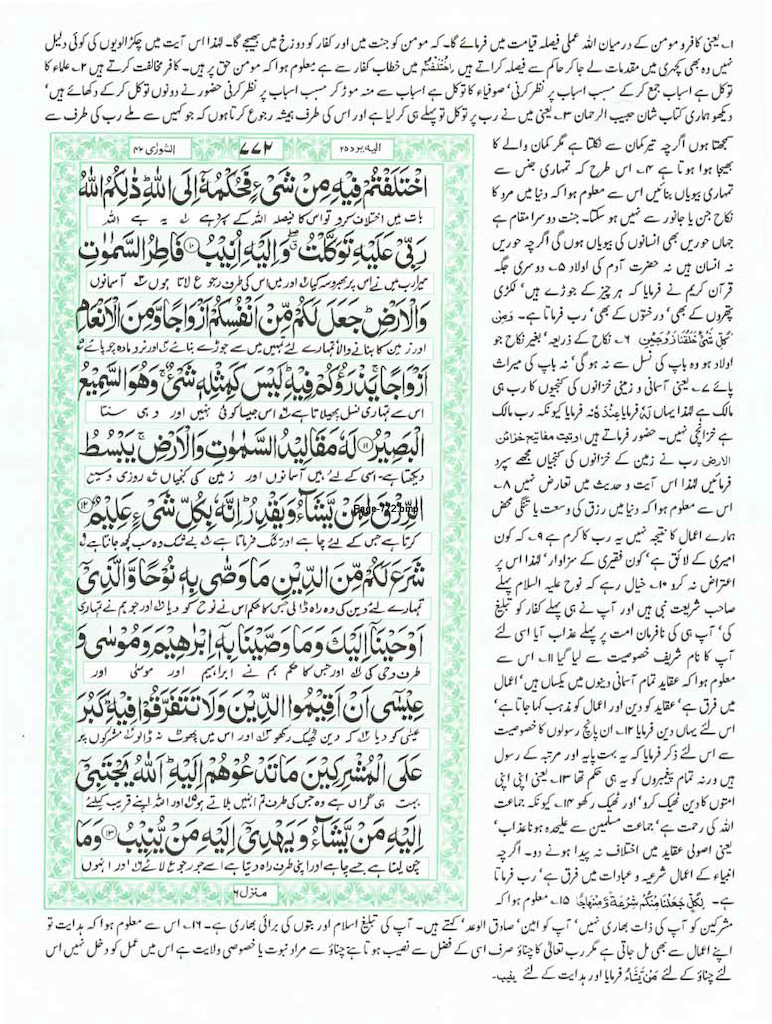 ۱۔ یعنی کافر و مومن کے درمیان اللہ عملی فیصلہ قیامت میں فرمائے گا۔ کہ مومن کو جنت میں اور کفار کو دوزخ میں بھیجے گا۔ لہٰذا اس آیت میں چکڑالویوں کی کوئی دلیل
نہیں وہ بھی کچہری میں مقدمات لے جا کر حاکم سے فیصلہ کراتے ہیں اِخْتَلَفْتُمْ میں خطاب کفار سے ہے معلوم ہوا کہ مومن حق پر ہیں۔ کافر مخالفت کرتے ہیں ۲۔ علماء کا
توکل ہے اسباب جمع کر کے مسبب اسباب پر نظر کرنی' صوفیاء کا توکل ہے اسباب سے منہ موڑ کر مسبب اسباب پر نظر کرنی حضور نے دونوں توکل کر کے دکھائے ہیں'
دیکھو ہماری کتاب شان حبیب الرحمان ۳۔ یعنی میں نے رب پر توکل تو پہلے ہی کر لیا ہے اور اس کی طرف ہمیشہ رجوع کرتا ہوں کہ جو کہیں سے ملے رب کی طرف سے
سمجھتا ہوں اگرچہ تیر کمان سے نکلتا ہے مگر کمان والے کا
بھیجا ہوا ہوتا ہے ۴۔ اس طرح کہ تمہاری جنس سے
تمہاری بیویاں بنائیں اس سے معلوم ہوا کہ دنیا میں مرد کا
نکاح جن یا جانور سے نہیں ہو سکتا۔ جنت دوسرا مقام ہے
جہاں حوریں بھی انسانوں کی بیویاں ہوں گی اگرچہ حوریں
نہ انسان ہیں نہ حضرت آدم کی اولاد ۵۔ دوسری جگہ
قرآن کریم نے فرمایا کہ ہر چیز کے جوڑے ہیں' لکڑی
پتھروں کے بھی' درختوں کے بھی' رب فرماتا ہے۔ وَمِنْ
كُلِّ شَيْءٍ خَلَقْنَا زَوْجَيْنِ ۶۔ نکاح کے ذریعہ' بغیر نکاح جو
اولاد ہو وہ باپ کی نسل سے نہ ہو گی' نہ باپ کی میراث
پائے ۷۔ یعنی آسمانی و زمینی خزانوں کی کنجیوں کا رب ہی
مالک ہے لہٰذا یہاں لَہٗ فرمایا عِنْدَہٗ نہ فرمایا کیونکہ رب مالک
ہے خزانچی نہیں۔ حضور فرماتے ہیں اوتیت مفاتیح خزائن
الارض رب نے زمین کے خزانوں کی کنجیاں مجھے سپرد
فرمائیں لہٰذا اس آیت و حدیث میں تعارض نہیں ۸۔
اس سے معلوم ہوا کہ دنیا میں رزق کی وسعت یا تنگی محض
ہمارے اعمال کا نتیجہ نہیں یہ رب کا کرم ہے ۹۔ کہ کون
امیری کے لائق ہے' کون فقیری کے سزاوار' لہٰذا اس پر
اعتراض نہ کرو ۱۰۔ خیال رہے کہ نوح علیہ السلام پہلے
صاحب شریعت نبی ہیں اور آپ نے ہی پہلے کفار کو تبلیغ
کی' آپ ہی کی نافرمان امت پر پہلے عذاب آیا اسی لئے
آپ کا نام شریف خصوصیت سے لیا گیا ۱۱۔ اس سے
معلوم ہوا کہ عقاید تمام آسمانی دینوں میں یکساں ہیں' اعمال
میں فرق ہے' عقاید کو دین اور اعمال کو مذہب کہا جاتا ہے'
اس لئے یہاں دین فرمایا ۱۲۔ ان پانچ رسولوں کا خصوصیت
سے اس لئے ذکر فرمایا کہ یہ بہت پایہ اور مرتبہ کے رسول
ہیں ورنہ تمام پیغمبروں کو یہ ہی حکم تھا ۱۳۔ یعنی اپنی اپنی
امتوں کا دین ٹھیک کرو' اور ٹھیک رکھو ۱۴۔ کیونکہ جماعت
اللہ کی رحمت ہے' جماعت مسلمین سے علیحدہ ہونا عذاب'
یعنی اصولی عقاید میں اختلاف نہ پیدا ہونے دو۔ اگرچہ
انبیاء کے اعمال شرعیہ و عبادات میں فرق ہے' رب فرماتا
ہے۔ لِكُلٍّ جَعَلْنَا مِنْكُمْ شِرْعَةً وَّمِنْهَاجًا ۱۵۔ معلوم ہوا کہ
الیه یرد ۲۵ ۷۷۲ الشورٰی ۴۲
اخْتَلَفْتُمْ فِيْهِ مِنْ شَيْءٍ فَحُكْمُهٗٓ اِلَى اللّٰهِ ذٰلِكُمُ اللّٰهُ
بات میں اختلاف کرو تو اس کا فیصلہ اللہ کے سپرد ہے یہ ہے اللہ
رَبِّيْ عَلَيْهِ تَوَكَّلْتُ وَاِلَيْهِ اُنِيْبُ ۱۰ فَاطِرُ السَّمٰوٰتِ
میرا رب میں نے اس پر بھروسہ کیا اور میں اس کی طرف رجوع لاتا ہوں آسمانوں
وَالْاَرْضِ جَعَلَ لَكُمْ مِّنْ اَنْفُسِكُمْ اَزْوَاجًا وَّمِنَ الْاَنْعَامِ
اور زمین کا بنانے والا تمہارے لئے تمہیں میں سے جوڑے بنائے اور نر و مادہ چوپائے
اَزْوَاجًا يَذْرَؤُكُمْ فِيْهِ لَيْسَ كَمِثْلِهٖ شَيْءٌ وَهُوَ السَّمِيْعُ
اس سے تمہاری نسل پھیلاتا ہے اس جیسا کوئی نہیں اور وہی سنتا
الْبَصِيْرُ ۱۱ لَهٗ مَقَالِيْدُ السَّمٰوٰتِ وَالْاَرْضِ يَبْسُطُ
دیکھتا ہے اسی کے لئے ہیں آسمانوں اور زمین کی کنجیاں روزی وسیع
الرِّزْقَ لِمَنْ يَّشَآءُ وَيَقْدِرُ اِنَّهٗ بِكُلِّ شَيْءٍ عَلِيْمٌ ۱۲
Page-772.bmp
کرتا ہے جس کے لئے چاہے اور تنگ فرماتا ہے بے شک وہ سب کچھ جانتا ہے
شَرَعَ لَكُمْ مِّنَ الدِّيْنِ مَا وَصّٰى بِهٖ نُوْحًا وَّالَّذِيْٓ
تمہارے لئے دین کی وہ راہ ڈالی جس کا حکم اس نے نوح کو دیا اور جو ہم نے تمہاری
اَوْحَيْنَآ اِلَيْكَ وَمَا وَصَّيْنَا بِهٖٓ اِبْرٰهِيْمَ وَمُوْسٰى وَ
طرف وحی کی اور جس کا حکم ہم نے ابراہیم اور موسٰی اور
عِيْسٰٓى اَنْ اَقِيْمُوا الدِّيْنَ وَلَا تَتَفَرَّقُوْا فِيْهِ كَبُرَ
عیسٰی کو دیا کہ دین ٹھیک رکھو اور اس میں پھوٹ نہ ڈالو مشرکوں پر
عَلَى الْمُشْرِكِيْنَ مَا تَدْعُوْهُمْ اِلَيْهِ اَللّٰهُ يَجْتَبِيْٓ
بہت ہی گراں ہے وہ جس کی طرف تم انہیں بلاتے ہو اور اللہ اپنے قریب کیلئے
اِلَيْهِ مَنْ يَّشَآءُ وَيَهْدِيْٓ اِلَيْهِ مَنْ يُّنِيْبُ ۱۳ وَمَا
چن لیتا ہے جسے چاہے اور اپنی طرف راہ دیتا ہے اسے جو رجوع لائے اور انہوں
منزل ۶
مشرکین کو آپ کی ذات بھاری نہیں' آپ کو امین' صادق الوعد' کہتے ہیں۔ آپ کی تبلیغ اسلام اور بتوں کی برائی بھاری ہے۔ ۱۶۔ اس سے معلوم ہوا کہ ہدایت تو
اپنے اعمال سے بھی مل جاتی ہے مگر رب تعالیٰ کا چناؤ صرف اسی کے فضل سے نصیب ہوتا ہے چناؤ سے مراد نبوت یا خصوصی ولایت ہے اس میں عمل کو دخل نہیں اس
لئے چناؤ کے لئے مَنْ يَّشَآءُ فرمایا اور ہدایت کے لئے ینیب۔